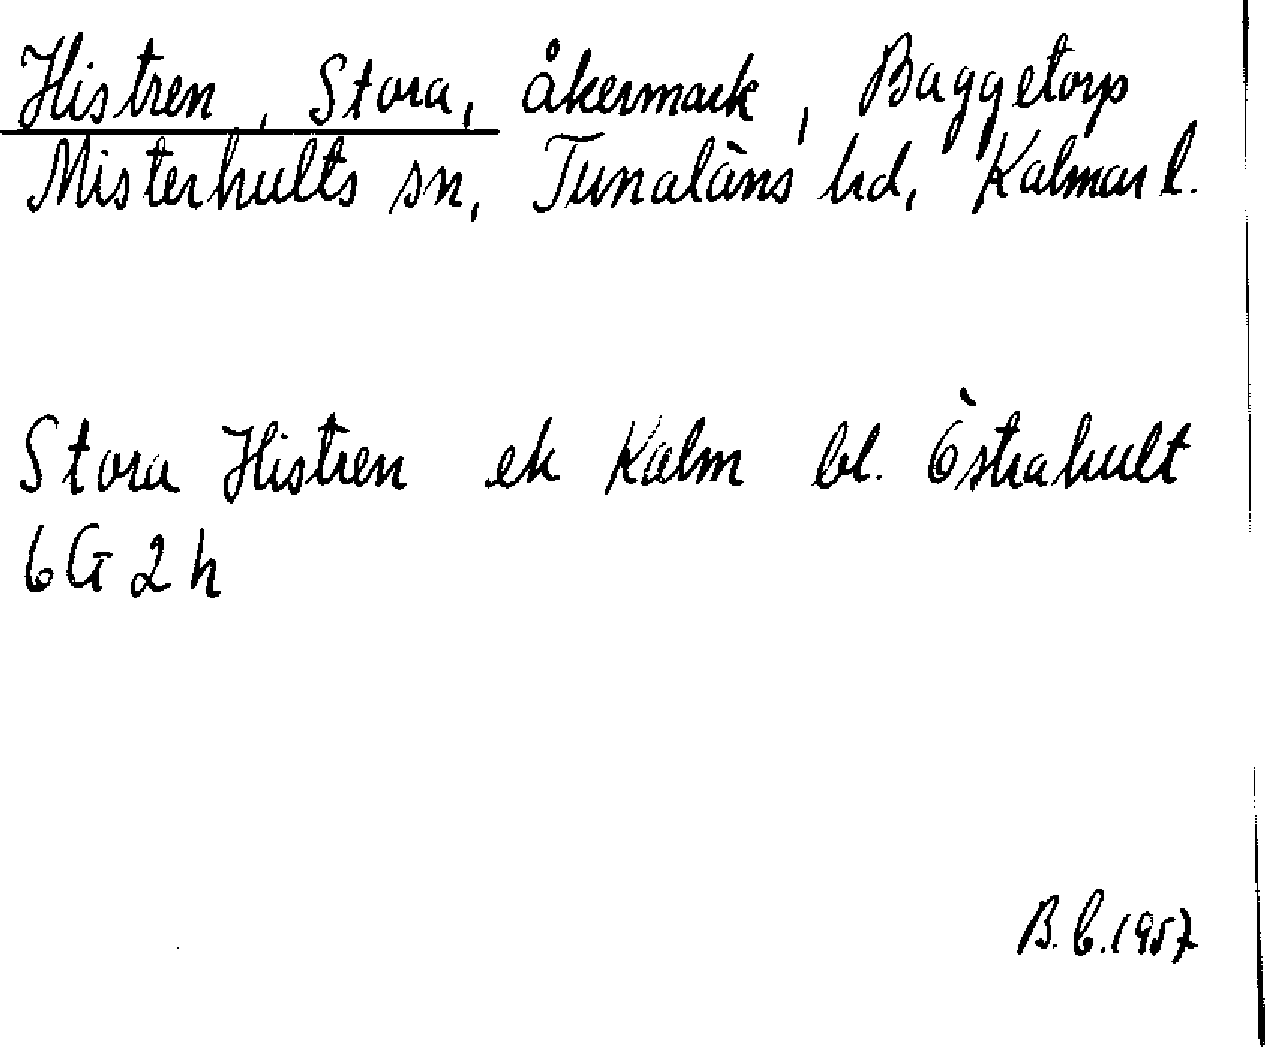 Histren, Stora, åkermark, Baggetorp
Misterhults sn, Tunaläns hd, Kalmar l.
Stora Histren ek Kalm bl. Östrahult
6G 2h
B. C. 1957